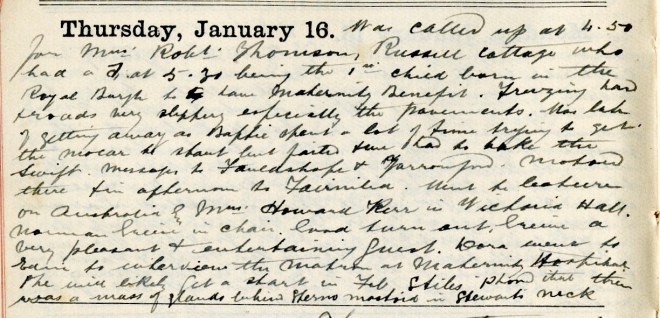 Thursday, January 16. Was called up at 4.50
for Mrs Robt Thomson, Russell Cottage who
had a F. at 5.30 being the 1st child born in the
Royal Burgh to have Maternity Benefit. Freezing hard
& roads very slippery especially the pavements. Was late
of getting away as Baptie spent a lot of time trying to get
the mocar to start but failed & we had to take the
Swift. Messages to Fauldshope & Yarrowford. Motored
there & in afternoon to Fairnilee. Went to lecture
on Australia by Mrs Howard Kerr in Victoria Hall.
Norman in chair. Good turn out, a
very pleasant & entertaining guest. Dora went to
Edin to interview the Matron at Maternity Hospital.
She will likely get a start in Feb. Stiles phoned that there
was a mass of glands behind Sterno mastoid in Stewarts neck